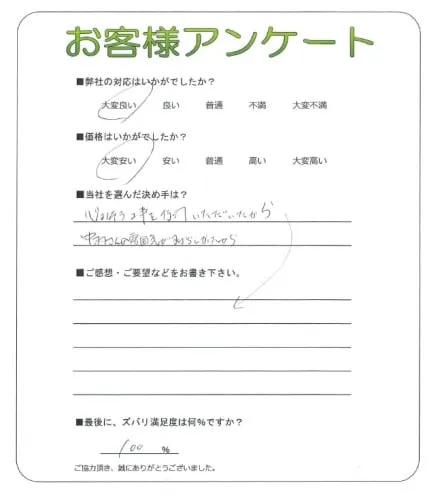 お客様アンケート
■弊社の対応はいかがでしたか？
大変良い 良い 普通 不満 大変不満
■価格はいかがでしたか？
大変安い 安い 普通 高い 大変高い
■当社を選んだ決め手は？
いただいたから
■ご感想・ご要望などをお書き下さい。
■最後に、ズバリ満足度は何%ですか？
100 %
ご協力頂き、誠にありがとうございました。